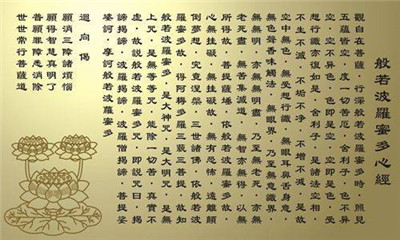 般若波羅蜜多心經
觀自在菩薩，行深般若波羅蜜多時，照見
五蘊皆空，度一切苦厄，舍利子，色不異
空，空不異色，色即是空，空即是色，受
想行識亦復如是，舍利子，是諸法空相，
不生不滅，不垢不淨，不增不減，是故
空中無色，無受想行識，無眼耳鼻舌身意，
無色聲香味觸法，無眼界，乃至無意識界，
無無明，亦無無明盡，乃至無老死，亦無
老死盡，無苦集滅道，無智亦無得，以無
所得故，菩提薩埵，依般若波羅蜜多故，
心無罣礙，無罣礙故，無有恐怖，遠離顛
倒夢想，究竟涅槃，三世諸佛，依般若波
羅蜜多故，得阿耨多羅三藐三菩提，故知
般若波羅蜜多，是大神咒，是大明咒，是無
上咒，是無等等咒，能除一切苦，真實不
虛，故說般若波羅蜜多咒，即說咒曰，揭
諦揭諦，波羅揭諦，波羅僧揭諦，菩提娑
婆訶，摩訶般若波羅蜜多
迴向偈
願消三障諸煩惱
願得智慧真明了
普願罪障悉消除
世世常行菩薩道